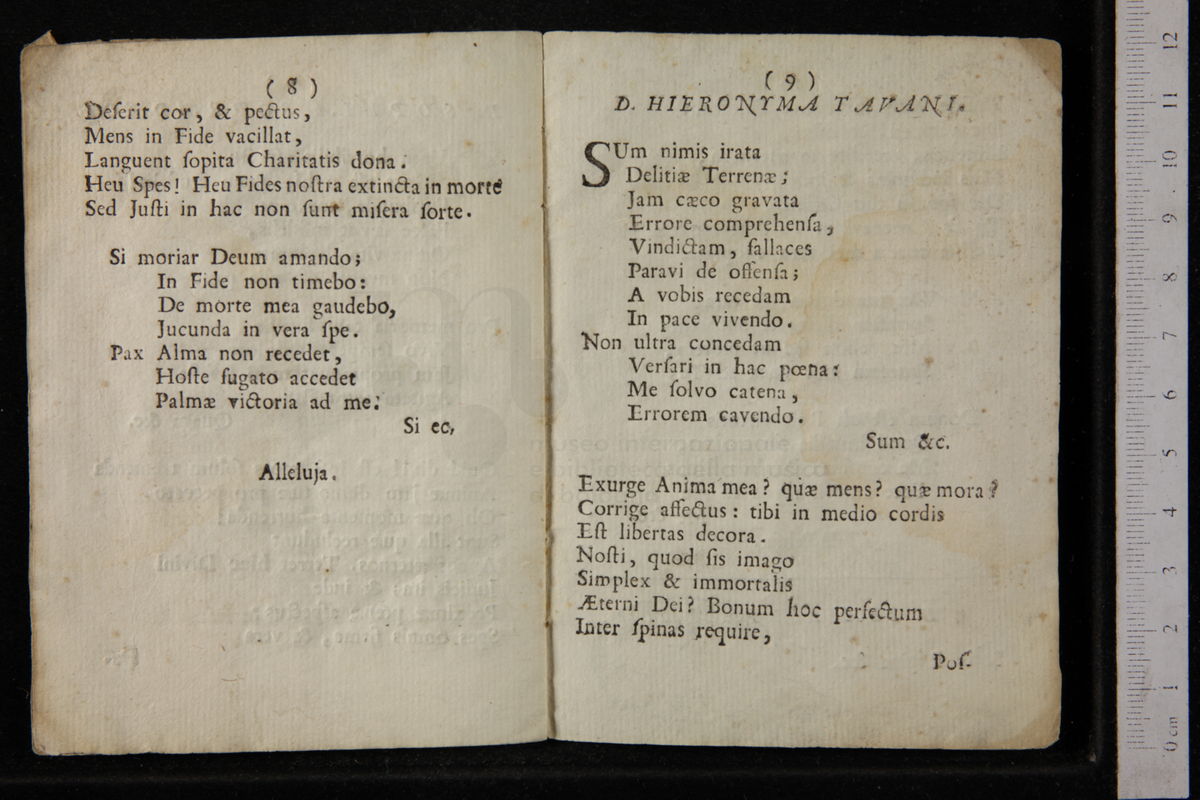 ( 8 )
Deserit cor, & pectus,
Mens in Fide vacillat,
Languent ſopita Charitatis dona.
Heu Spes! Heu Fides noſtra extincta in morte
Sed Juſti in hac non ſunt miſera ſorte.
Si moriar Deum amando;
In Fide non timebo:
De morte mea gaudebo,
Jucunda in vera ſpe.
Pax Alma non recedet,
Hoſte fugato accedet
Palmæ victoria ad me.
Si ec,
Alleluja.
( 9 )
D. HIERONYMA TAVANI.
SUm nimis irata
Delitiæ Terrenæ;
Jam cæco gravata
Errore comprehenſa,
Vindictam, fallaces
Paravi de offenſa;
A vobis recedam
In pace vivendo.
Non ultra concedam
Verſari in hac pœna:
Me ſolvo catena,
Errorem cavendo.
Sum &c.
Exurge Anima mea? quæ mens? quæ mora?
Corrige affectus: tibi in medio cordis
Eſt libertas decora.
Noſti, quod ſis imago
Simplex & immortalis
Æterni Dei? Bonum hoc perfectum
Inter ſpinas require,
Poſ-
museo internazionale
e biblioteca della musica
0 cm 1 2 3 4 5 6 7 8 9 10 11 12